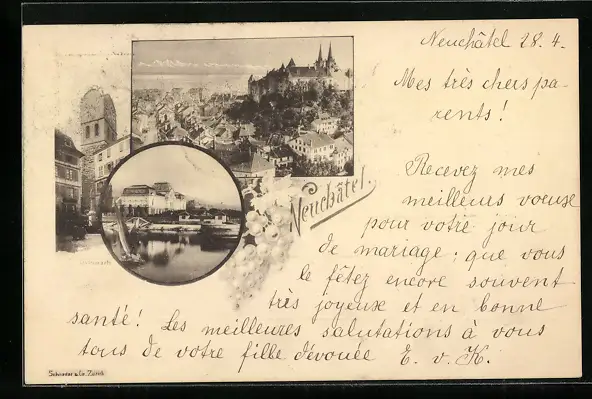 Neuchâtel 28. 4.
Mes très chers pa-
rents!
Recevez mes
meilleurs voeuxe
pour votre jour
de mariage; que vous
le fêtez encore souvent
très joyeuxe et en bonne
santé! Les meilleures salutations à vous
tous de votre fille dévouée E. v. K.
Neuchâtel.
Schröder & Cie. Zürich